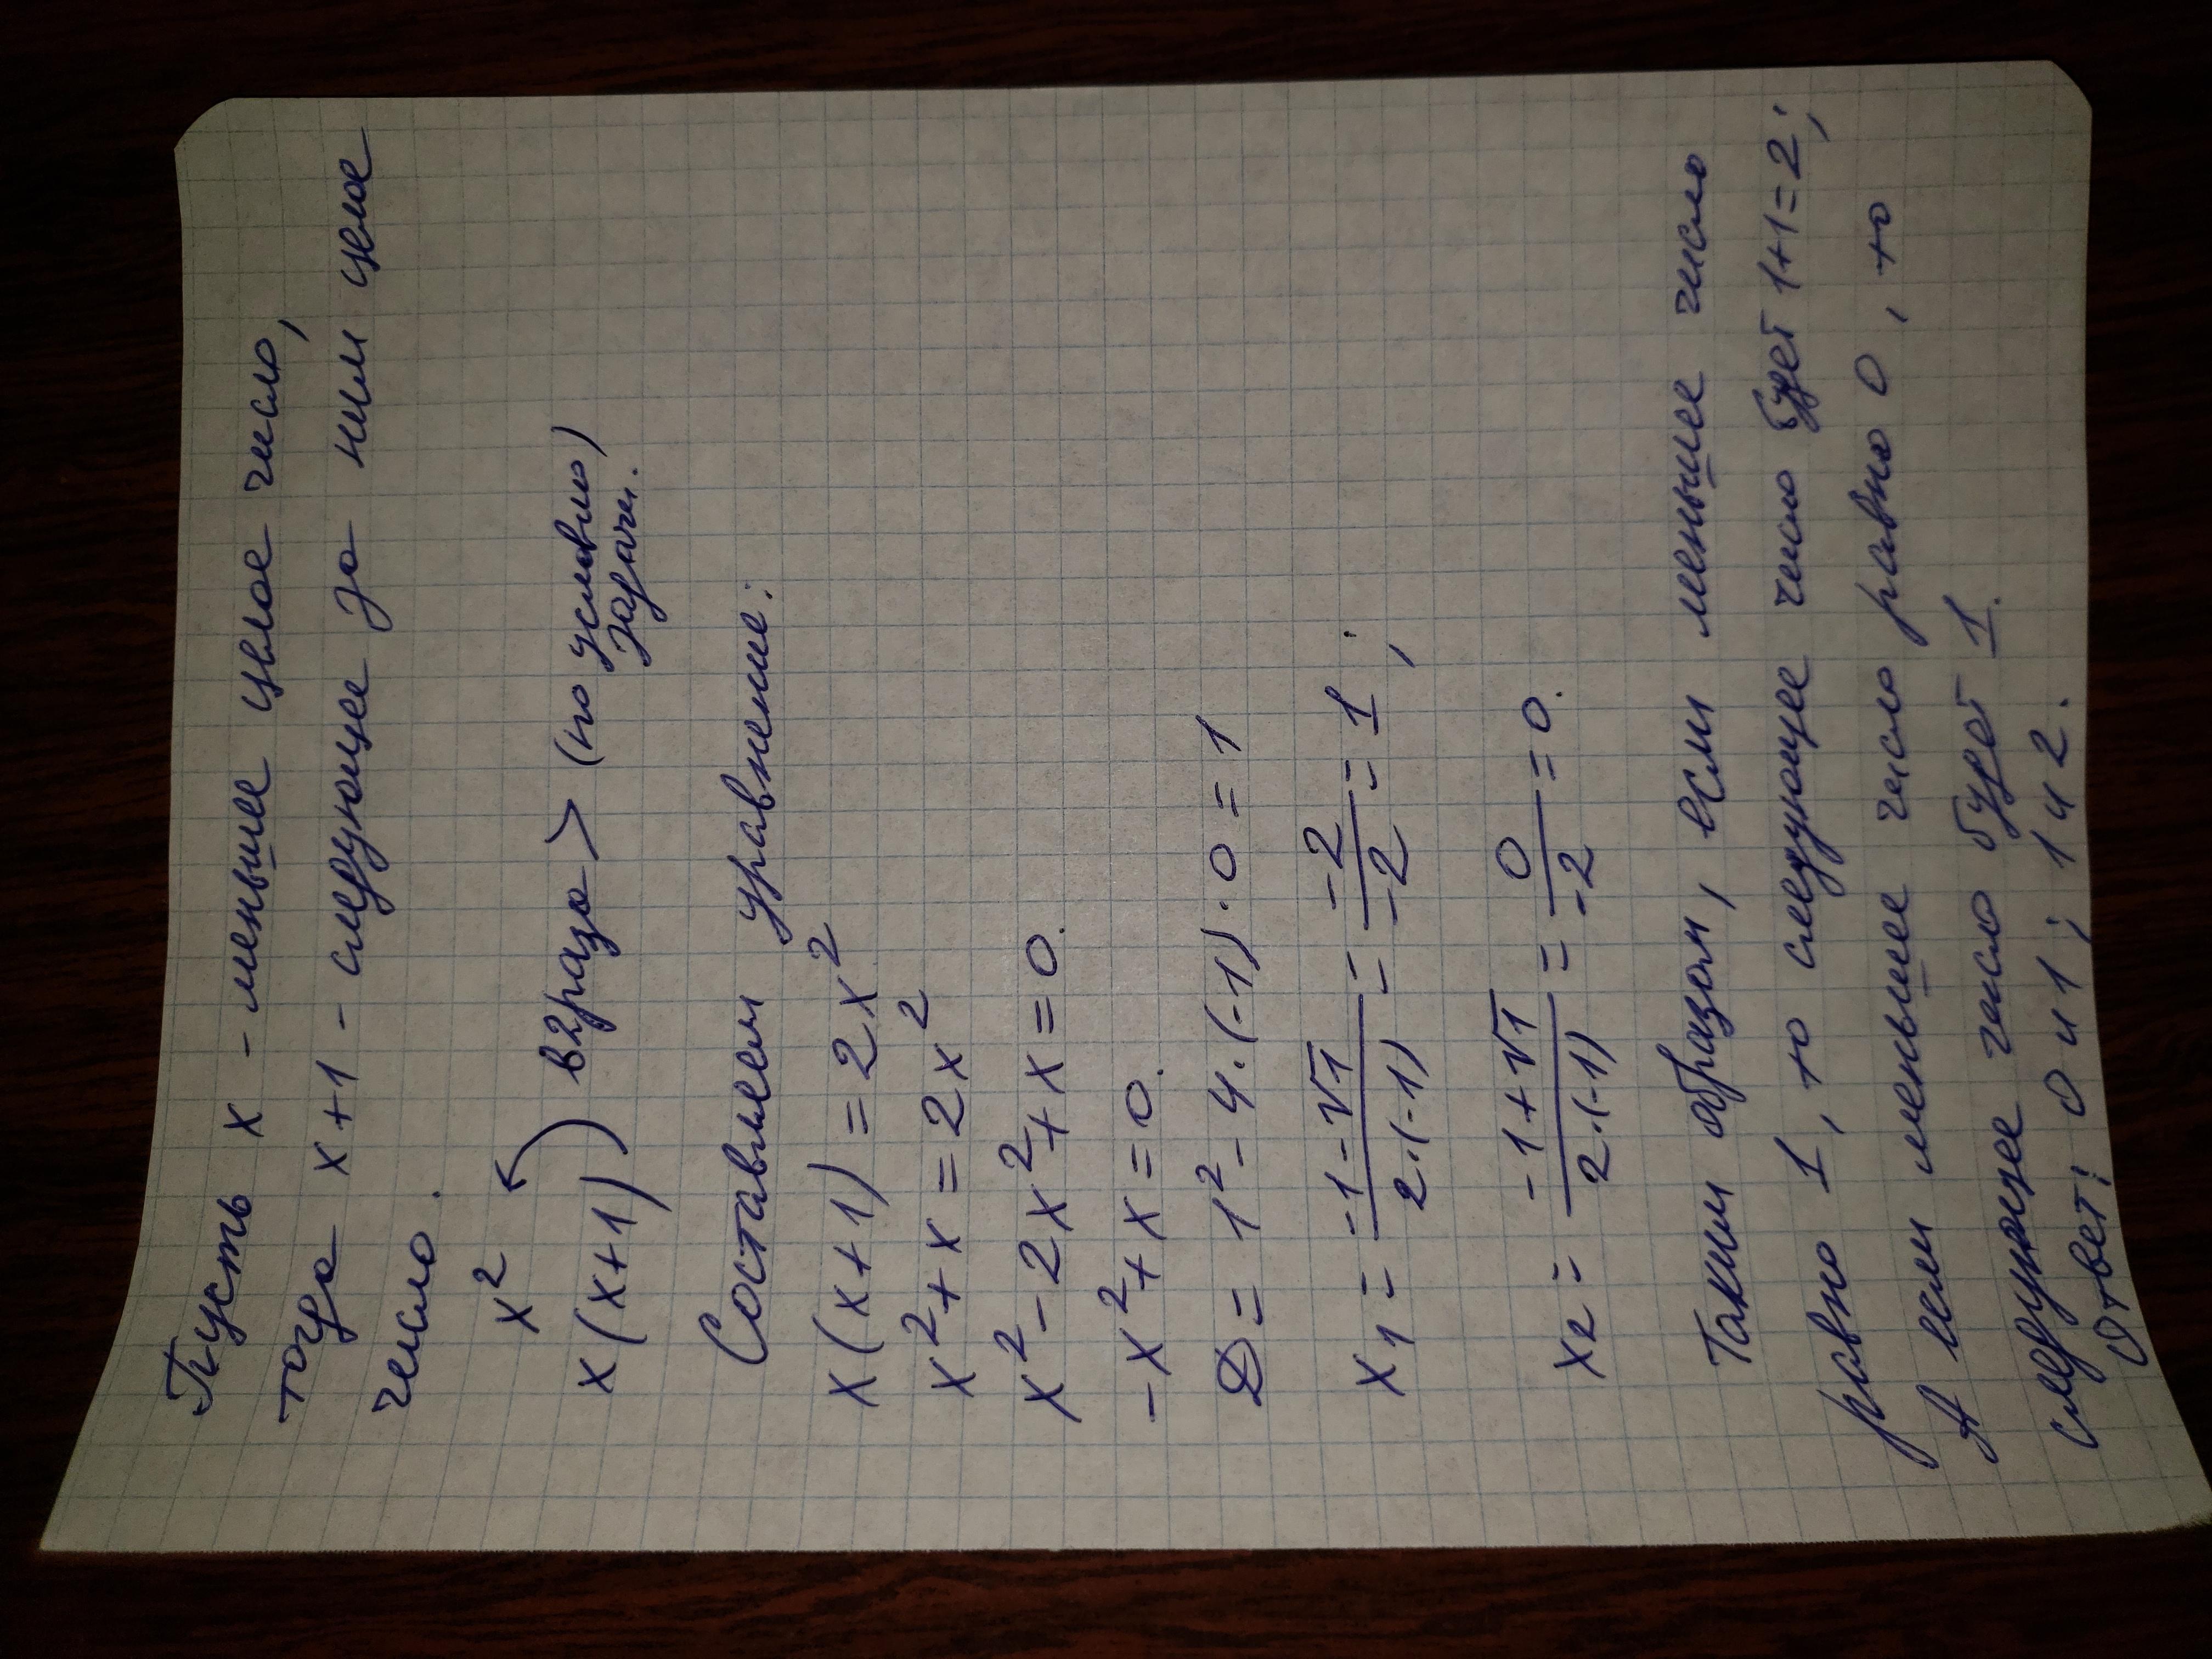 Пусть x - меньшее целое число,
тогда x+1 - следующее за ним целое
число.
x²
x(x+1) ) в 2 раза > (по условию)
задачи.
Составляем уравнение:
x(x+1) = 2x²
x²+x = 2x²
x²-2x²+x=0.
-x²+x=0.
D = 1²-4·(-1)·0 = 1
x₁ = \frac{-1-√1}{2·(-1)} = \frac{-2}{-2} = 1;
x₂ = \frac{-1+√1}{2·(-1)} = \frac{0}{-2} = 0.
Таким образом, если меньшее число
равно 1, то следующее число будет 1+1=2;
А если меньшее число равно 0, то
следующее число будет 1.
Ответ: 0 и 1; 1 и 2.